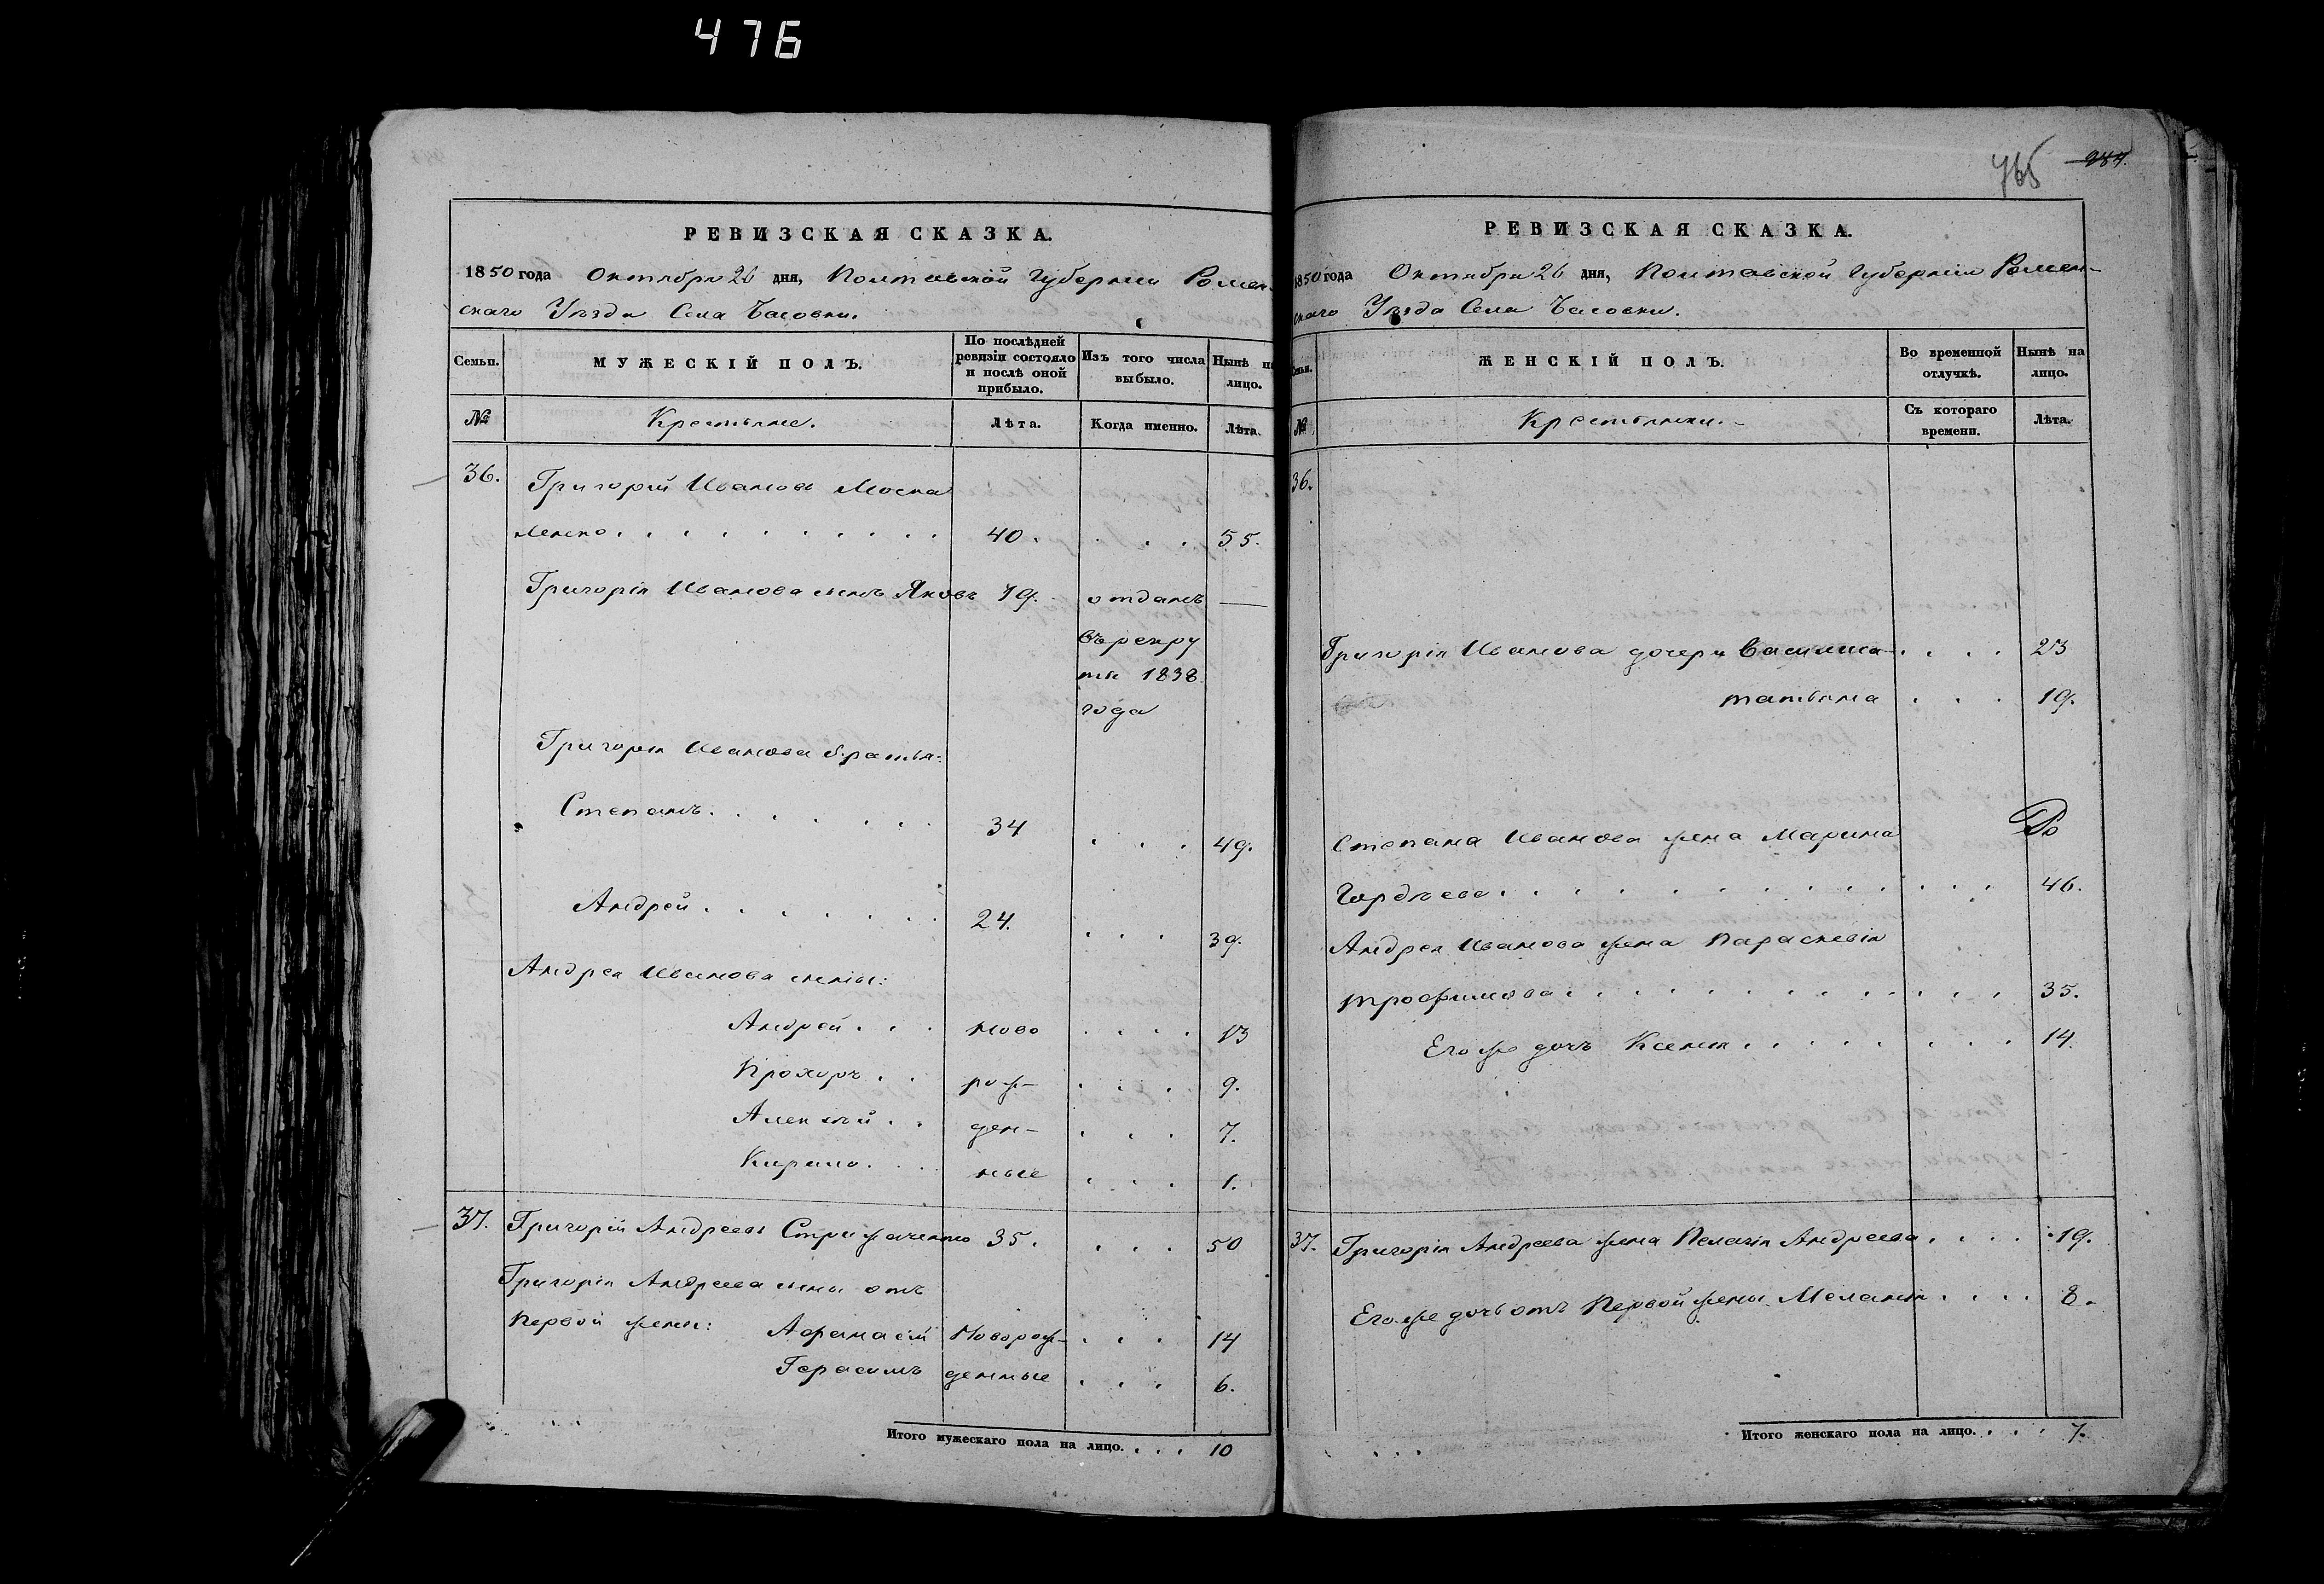 476
РЕВИЗСКАЯ СКАЗКА.
1850 года Октября 26 дня, Полтавской Губернии Ромен-
скаго Уѣзда Села Басовки.
Семьи.
МУЖЕСКІЙ ПОЛЪ.
По послѣдней ревизіи состояло и послѣ оной прибыло.
Изъ того числа выбыло.
Нынѣ на лицо.
№
Крестьяне.
Лѣта.
Когда именно.
Лѣта.
36. Григорій Ивановъ Моска
ленко . . . 40. . . . 55.
Григорія Иванова сынъ Яковъ 19. отданъ —
въ рекру
ты 1838
года
Григорія Иванова братья:
Степанъ . . . 34 . . . 49.
Андрей . . . 24. . . . 39.
Андрея Иванова сыны:
Андрей . . . ново . . . 13
Прохоръ . . рож- . . . 9.
Алексѣй . . ден- . . . 7.
Кирило . . . ные . . . 1.
37. Григорій Андреевъ Стрижаченко 35. . . . 50
Григорія Андреева сыны отъ
первой жены: Афанасій Новорож- . . . 14
Герасимъ денные . . . 6.
Итого мужескаго пола на лицо. . . . 10
765 984.
РЕВИЗСКАЯ СКАЗКА.
1850 года Октября 26 дня, Полтавской Губерніи Ромен-
скаго Уѣзда Села Басовки.
Семьи.
ЖЕНСКІЙ ПОЛЪ.
Во временной отлучкѣ.
Нынѣ на лицо.
№
Крестьянки.
Съ котораго времени.
Лѣта.
36.
Григорія Иванова дочери Василиса . . . 23
татьяна . . . 19.
Степана Иванова жена Марина
Гордѣева . . . 46.
Андрея Иванова жена Параскевія
трофимова . . . 35.
Его же дочь Ксенія . . . 14.
37. Григорія Андреева жена Пелагія Андреева . . . 19.
Его же дочь отъ Первой жены Меланія . . . 8.
Итого женскаго пола на лицо. . . . 7.